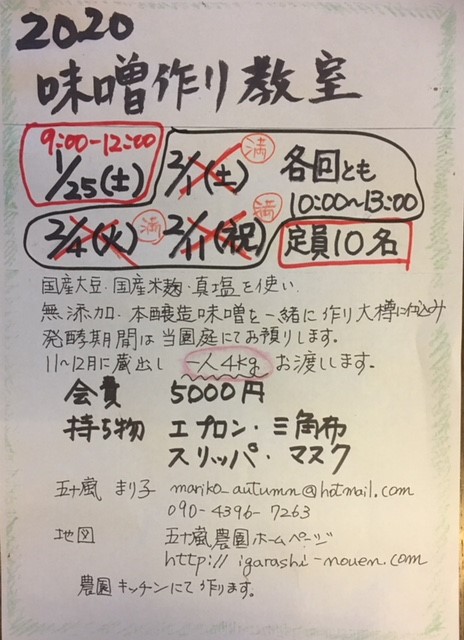 2020
味噌作り教室
9:00-12:00
1/25(土)
2/1(土)
満
各回とも
10:00~13:00
2/4(火)
満
2/11(祝)
満
定員10名
国産大豆・国産米麹・真塩を使い
無添加・本醸造味噌を一緒に作り大樽に仕込み
発酵期間は当園庭にてお預りします。
11~12月に蔵出し 一人4kg お渡しします。
会費 5000円
持ち物 エプロン・三角布
スリッパ・マスク
五十嵐 まり子 mariko_autumn@hotmail.com
090-4396-7263
地図 五十嵐農園ホームページ
http://igarashi-nouen.com
農園キッチンにて作ります。